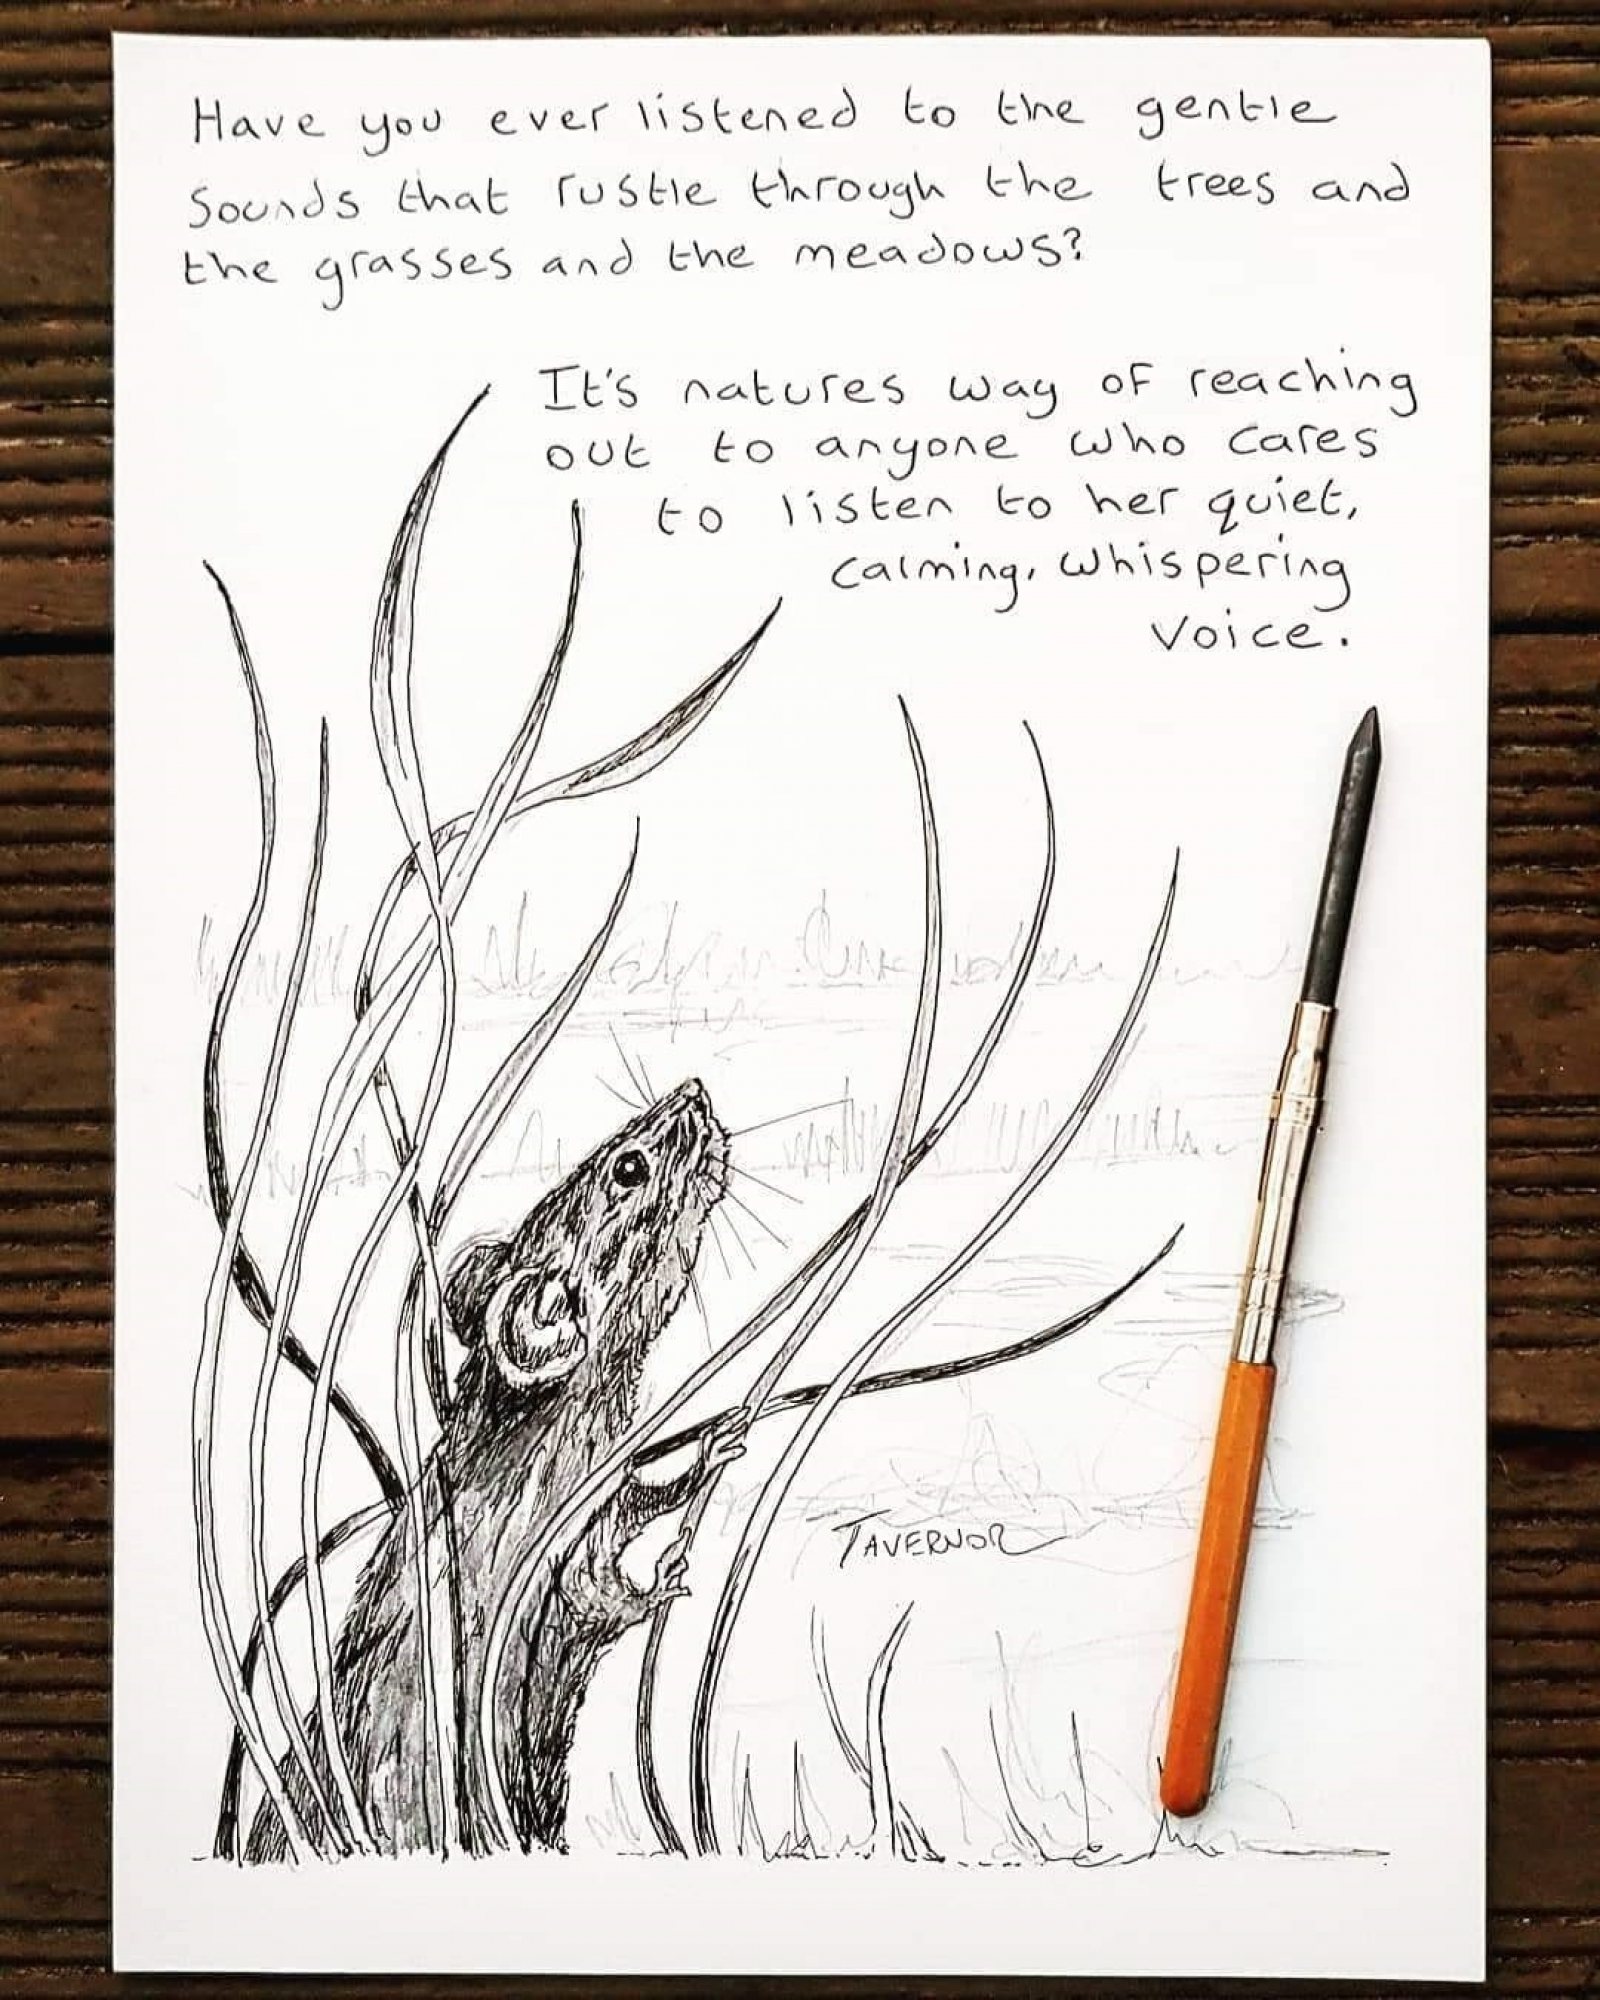 Have you ever listened to the gentle
sounds that rustle through the trees and
the grasses and the meadows?
It's natures way of reaching
out to anyone who cares
to listen to her quiet,
calming, whispering
voice.
TAVERNOR